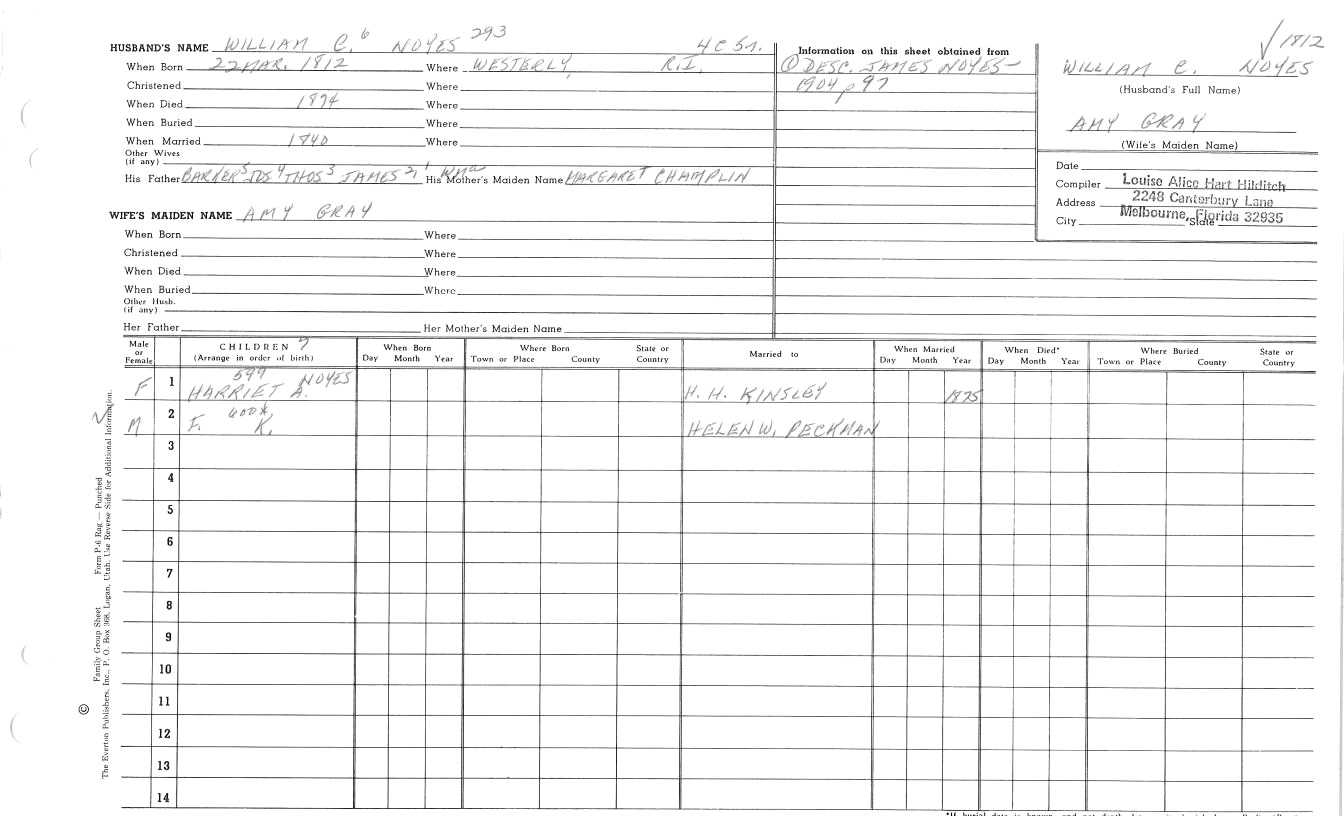 HUSBAND'S NAME WILLIAM C. 6 NOYES 293 4C5n.
When Born 22 MAR. 1812 Where WESTERLY, R.I.
Christened Where
When Died 1894 Where
When Buried Where
When Married 1840 Where
Other Wives
(if any)
His Father BARKER 5 JOS 4 THOS 3 JAMES 2, 1 His Mother's Maiden Name MARGARET CHAMPLIN
WIFE'S MAIDEN NAME AMY GRAY
When Born Where
Christened Where
When Died Where
When Buried Where
Other Husb.
(if any)
Her Father Her Mother's Maiden Name
Information on this sheet obtained from
① DESC. JAMES NOYES—
1904 p 97
√ 1812
WILLIAM C. NOYES
(Husband's Full Name)
AMY GRAY
(Wife's Maiden Name)
Date
Compiler Louise Alice Hart Hilditch
Address 2248 Canterbury Lane
City Melbourne, Florida 32935
State
Male or Female
CHILDREN 7
(Arrange in order of birth)
When Born
Day Month Year
Where Born
Town or Place County
State or Country
Married to
When Married
Day Month Year
When Died*
Day Month Year
Where Buried
Town or Place County
State or Country
F 1 599 HARRIET A. NOYES H. H. KINSLEY 1875
M 2 600* F. K. HELEN W. PECKMAN
3
4
5
6
7
8
9
10
11
12
13
14
© Family Group Sheet Form P-6 Rag — Punched
The Everton Publishers, Inc., P. O. Box 368, Logan, Utah. Use Reverse Side for Additional Information.